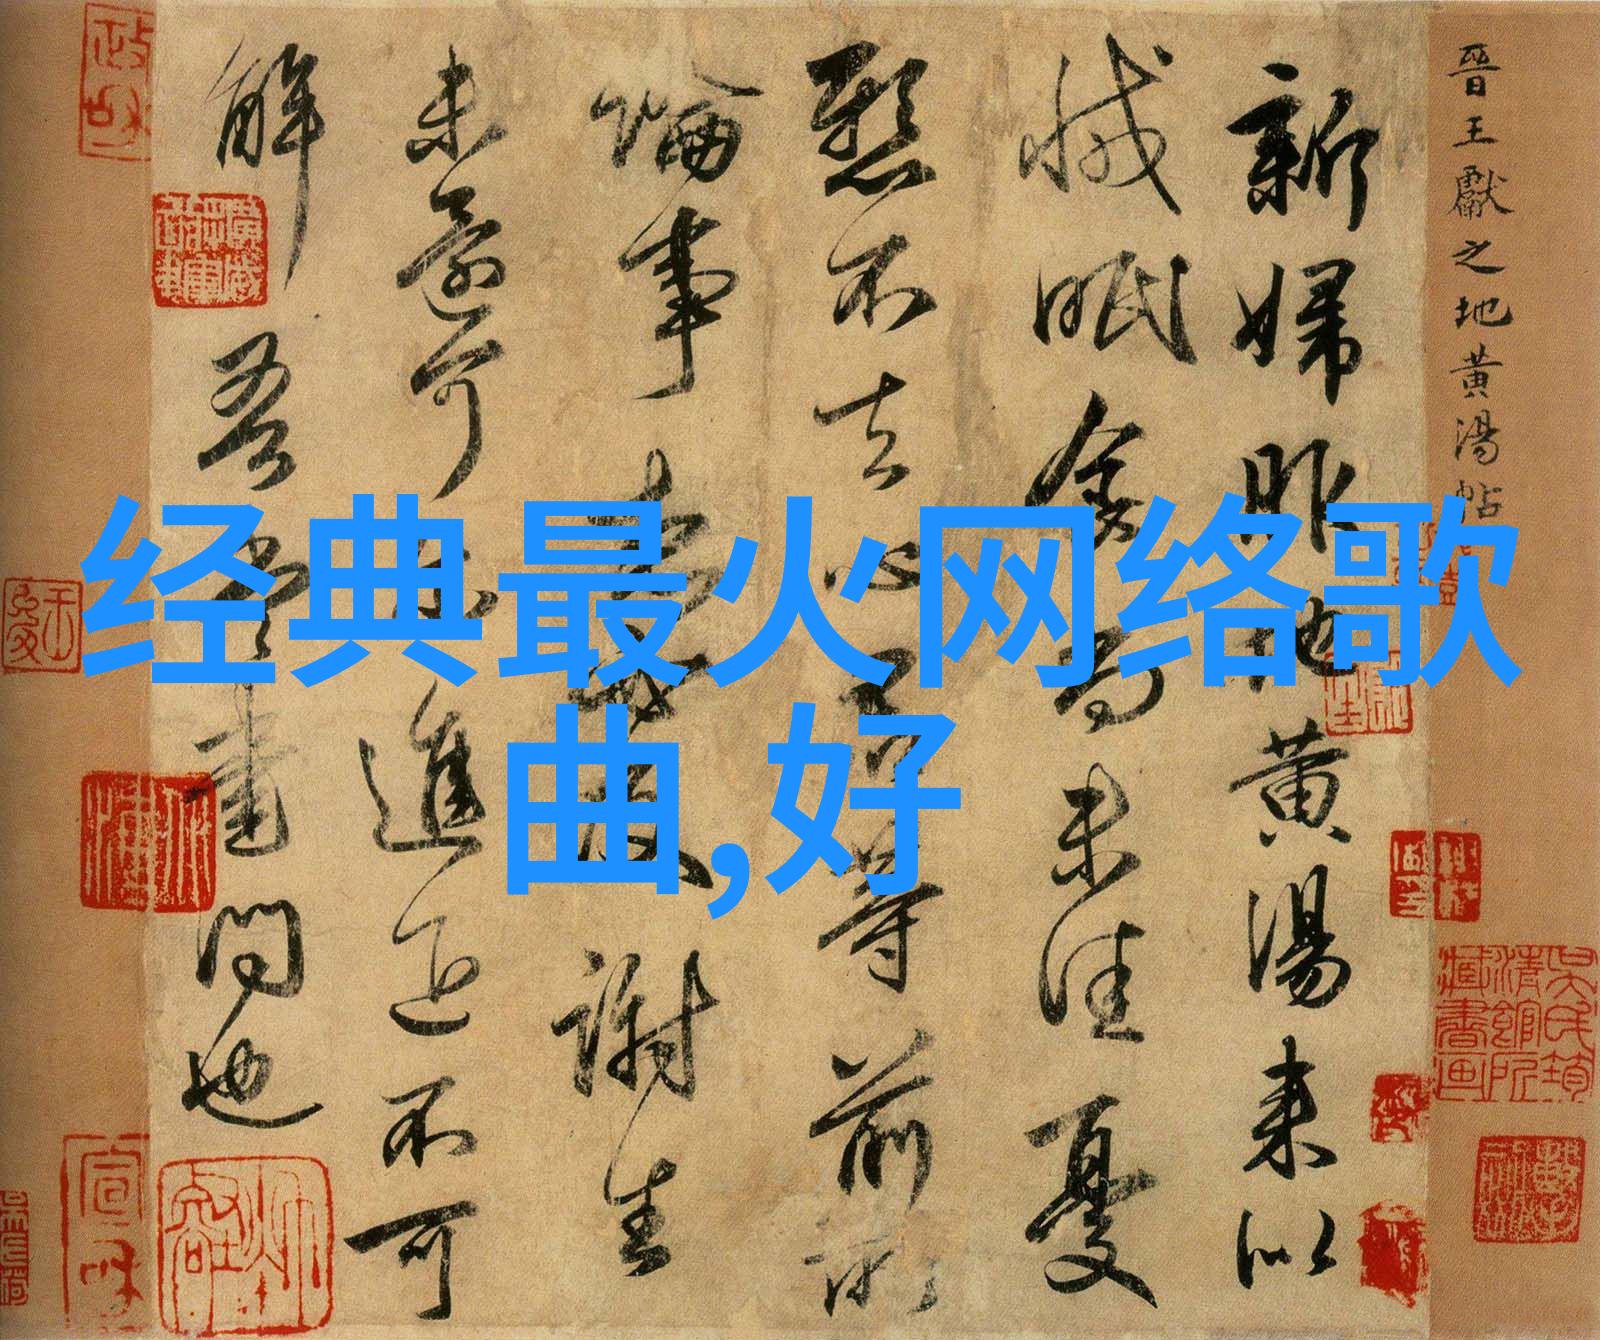 晉王獻之地黃湯帖
新婦服地黃湯來似
減眠食尚未佳憂
懸不去心君等前所
論事想必及謝生
未還可爾進退不可
解吾當書問也
经典最火网络歌
曲,好
政和
宣和